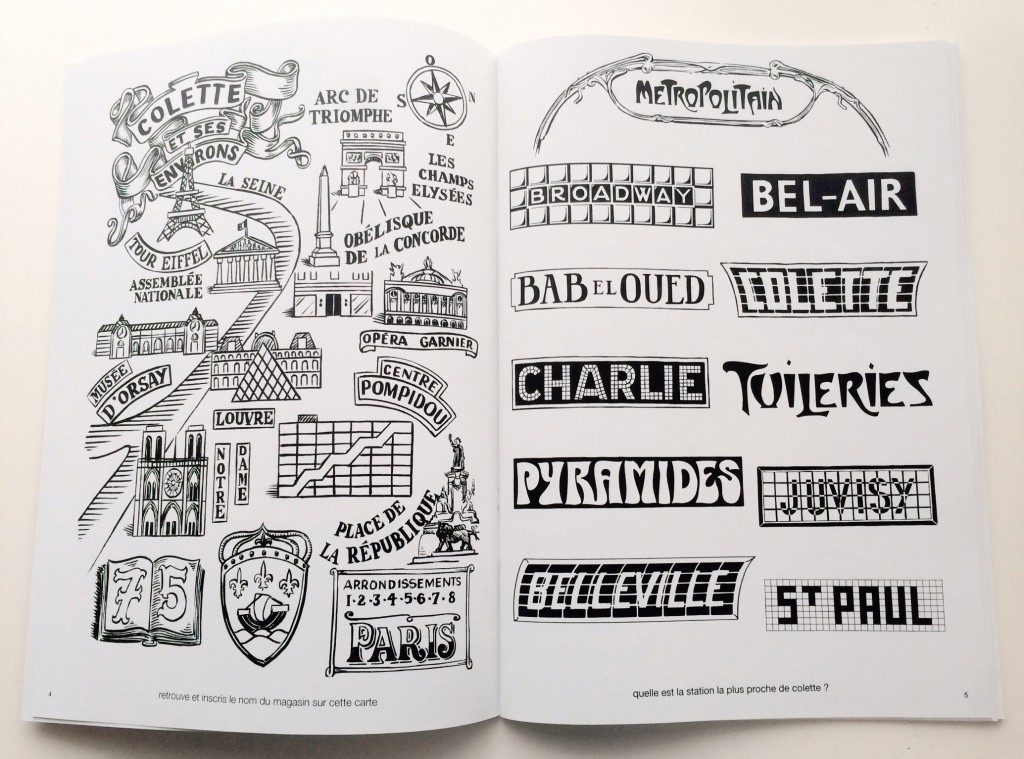 COLETTE
ET SES
ENVIRONS
ARC DE
TRIOMPHE
O
S
N
E
LES
CHAMPS
ELYSÉES
LA SEINE
OBÉLISQUE
DE LA CONCORDE
TOUR EIFFEL
ASSEMBLÉE
NATIONALE
OPÉRA GARNIER
MUSÉE
D'ORSAY
LOUVRE
CENTRE
POMPIDOU
NOTRE
DAME
PLACE DE
LA RÉPUBLIQUE
75
ARRONDISSEMENTS
1·2·3·4·5·6·7·8
PARIS
4
retrouve et inscris le nom du magasin sur cette carte
METROPOLITAIN
BROADWAY
BEL-AIR
BAB EL OUED
COLETTE
CHARLIE
TUILERIES
PYRAMIDES
JUVISY
BELLEVILLE
ST PAUL
quelle est la station la plus proche de colette ?
5